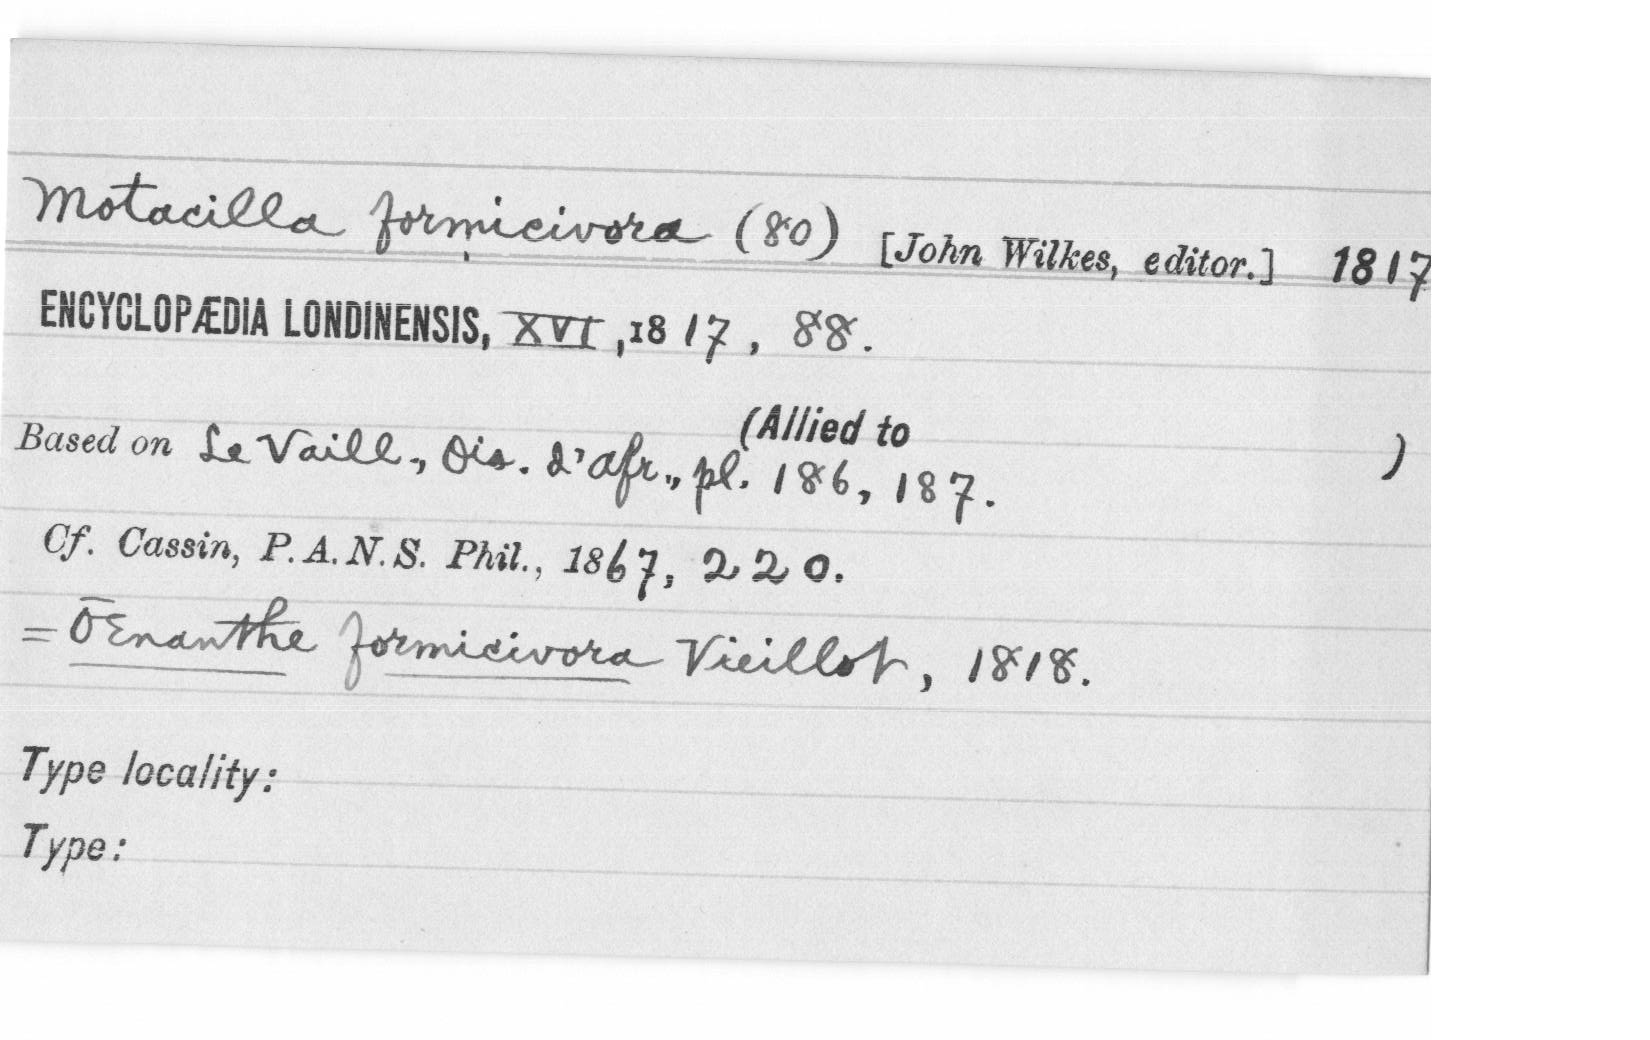 Motacilla formicivora (80) [John Wilkes, editor.] 1817
ENCYCLOPÆDIA LONDINENSIS, XVI, 1817, 88.
(Allied to )
Based on Le Vaill., Ois. d'Afr., pl. 186, 187.
Cf. Cassin, P. A. N. S. Phil., 1867, 220.
= Œnanthe formicivora Vieillot, 1818.
Type locality:
Type: